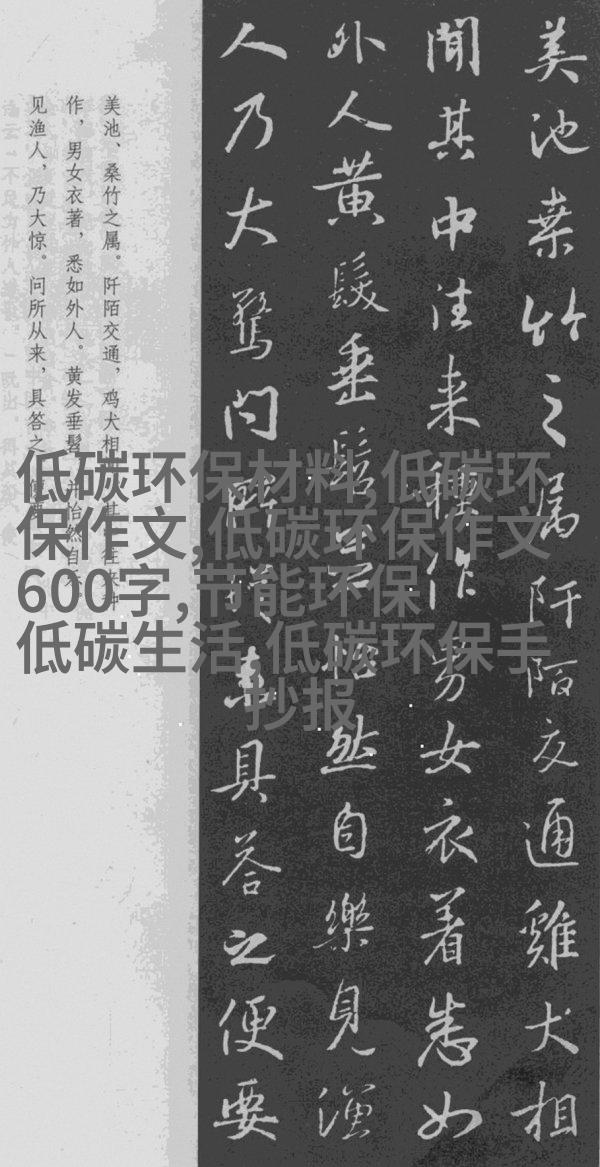 美池桒竹之属阡陌交通雞犬相
聞其中往来種作男女衣着悉如
外人黄髮垂髫並怡然自樂見漁
人乃大驚問所從来具荅之便要
美池、桑竹之属。阡陌交通，鸡犬相其中往来种
作，男女衣著，悉如外人。黄发垂髫，并怡然自乐。
见渔人，乃大惊。问所从来，具答之。便要
低碳环保材料,低碳环
保作文,低碳环保作文
600字,节能环保
低碳生活,低碳环保手
抄报